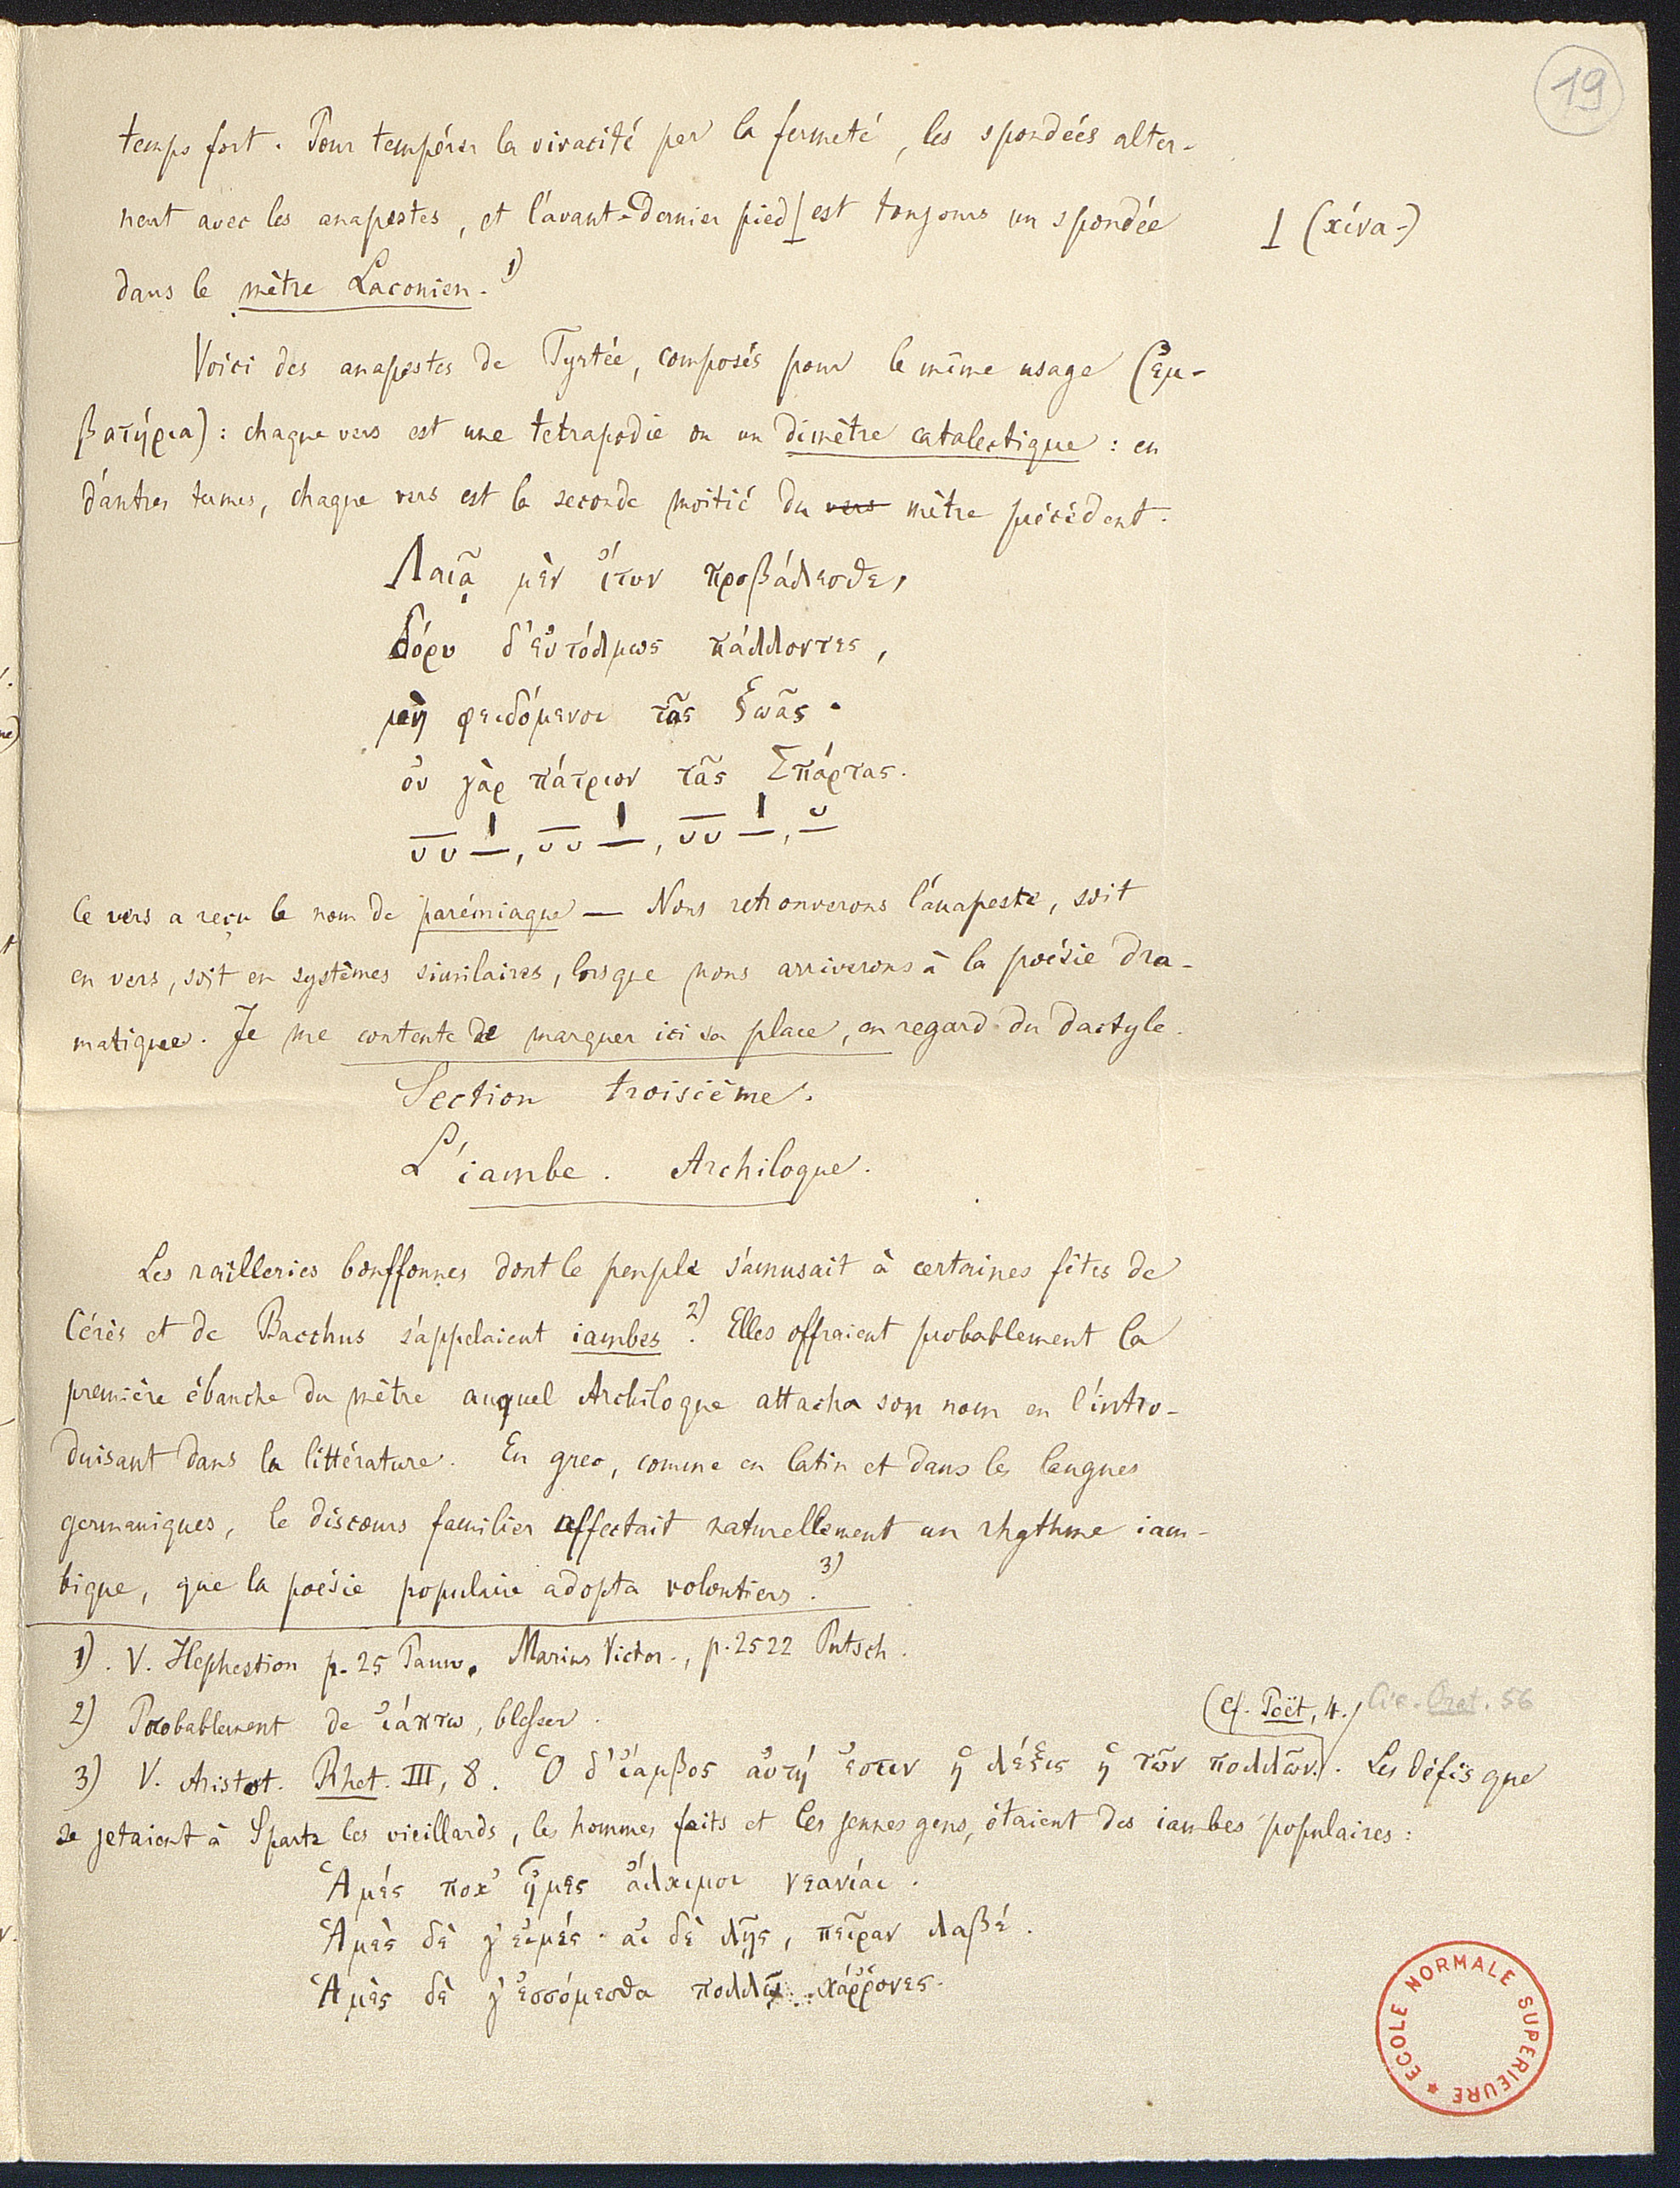 19
temps fort. Pour tempérer la vivacité par la fermeté, les spondées alter-
nent avec les anapestes, et l'avant-dernier pied | est toujours un spondée
⊥ (χίνα-)
dans le mètre Laconien. 1)
Voici des anapestes de Tyrtée, composés pour le même usage (ἐμ-
βατήρια): chaque vers est une tétrapodie ou un dimètre catalectique : en
d'autres termes, chaque vers est la seconde moitié du vers mètre précédent.
Λαιᾷ μὲν ἴτυν προβάλεσθε,
δόρυ δ'εὐτόλμως πάλλοντες,
μὴ φειδόμενοι τᾶς ζωᾶς·
οὐ γὰρ πάτριον τᾶς Σπάρτας.
Ce vers a reçu le nom de parémiaque — Nous retrouverons l'anapeste, soit
en vers, soit en systèmes similaires, lorsque nous arriverons à la poésie dra-
matique. Je me contente de marquer ici sa place, en regard du dactyle.
Section troisième.
L'iambe. Archiloque.
Les railleries bouffonnes dont le peuple s'amusait à certaines fêtes de
Cérès et de Bacchus s'appelaient iambes 2). Elles offraient probablement la
première ébauche du mètre auquel Archiloque attacha son nom en l'intro-
duisant dans la littérature. En grec, comme en latin et dans les langues
germaniques, le discours familier affectait naturellement un rhythme iam-
bique, que la poésie populaire adopta volontiers. 3)
1). V. Hephestion p. 25 Pauw. Marius Victor., p. 2522 Putsch.
2) Probablement de ἰάπτω, blesser.
(cf. Poët, 4.) Cic. Orat. 56
3) V. Aristot. Rhet. III, 8. Ὁ δ'ἴαμβος αὐτή ἐστιν ἡ λέξις ἡ τῶν πολλῶν. Les défis que
se jetaient à Sparte les vieillards, les hommes faits et les jeunes gens, étaient des iambes populaires :
Ἁμές ποκ' ἦμες ἄλκιμοι νεανίαι.
Ἁμὲς δὲ γ'εἰμές· αἰ δὲ λῇς, πεῖραν λαβέ.
Ἁμὲς δὲ γ'ἐσσόμεσθα πολλῷ κάῤῥονες.
ECOLE NORMALE SUPERIEURE